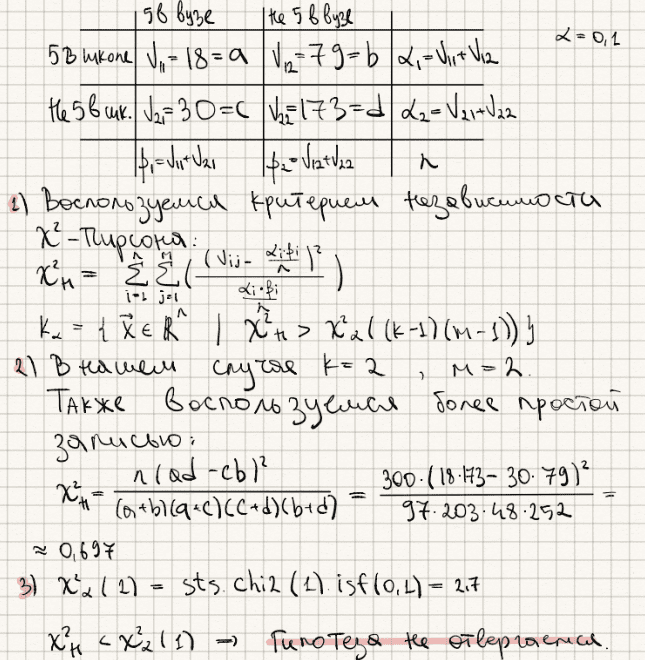 5 в вузе | не 5 в вузе
α = 0,1
5 в школе | V₁₁ = 18 = a | V₁₂ = 79 = b | α₁ = V₁₁ + V₁₂
не 5 в шк. | V₂₁ = 30 = c | V₂₂ = 173 = d | α₂ = V₂₁ + V₂₂
β₁ = V₁₁ + V₂₁ | β₂ = V₁₂ + V₂₂ | n
1) Воспользуемся критерием независимости
χ² - Пирсона:
χ²_H = Σ_{i=1}^{n} Σ_{j=1}^{m} ( (V_ij - α_i·β_i/n)² / (α_i·β_i/n) )
K_α = { x⃗ ∈ ℝⁿ | χ²_H > χ²_α((k-1)(m-1)) }
2) В нашем случае k = 2 , m = 2.
Также воспользуемся более простой
записью:
χ²_H = n(ad - cb)² / (a+b)(a+c)(c+d)(b+d) = 300·(18·173 - 30·79)² / 97·203·48·252 =
≈ 0,697
3) χ²_α(1) = sts.chi2(1).isf(0,1) = 2,7
χ²_H < χ²_α(1) ⇒ Гипотеза не отвергается.